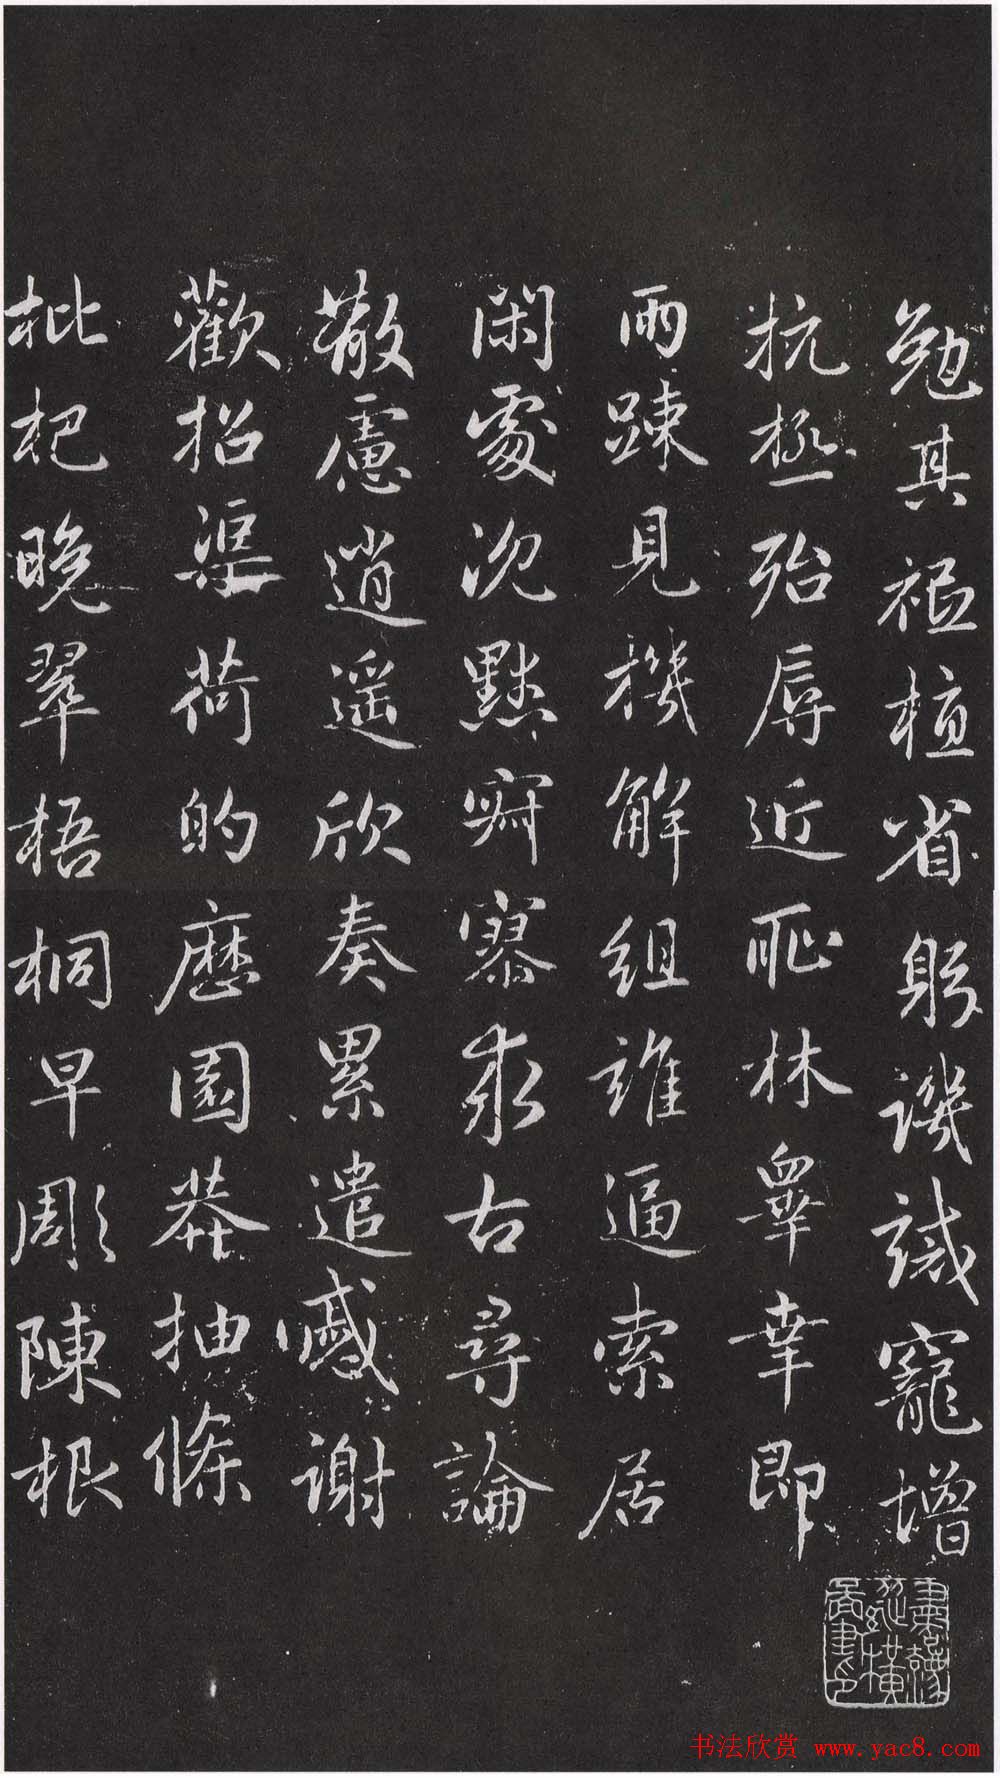 勉其祗植省躬譏誡寵增
抗極殆辱近耻林皐幸即
兩踈見機解組誰逼索居
閑處沈默寂寥求古尋論
散慮逍遥欣奏累遣慼謝
歡招渠荷的歷園莽抽條
枇杷晚翠梧桐早彫陳根
书法欣赏 www.yac8.com